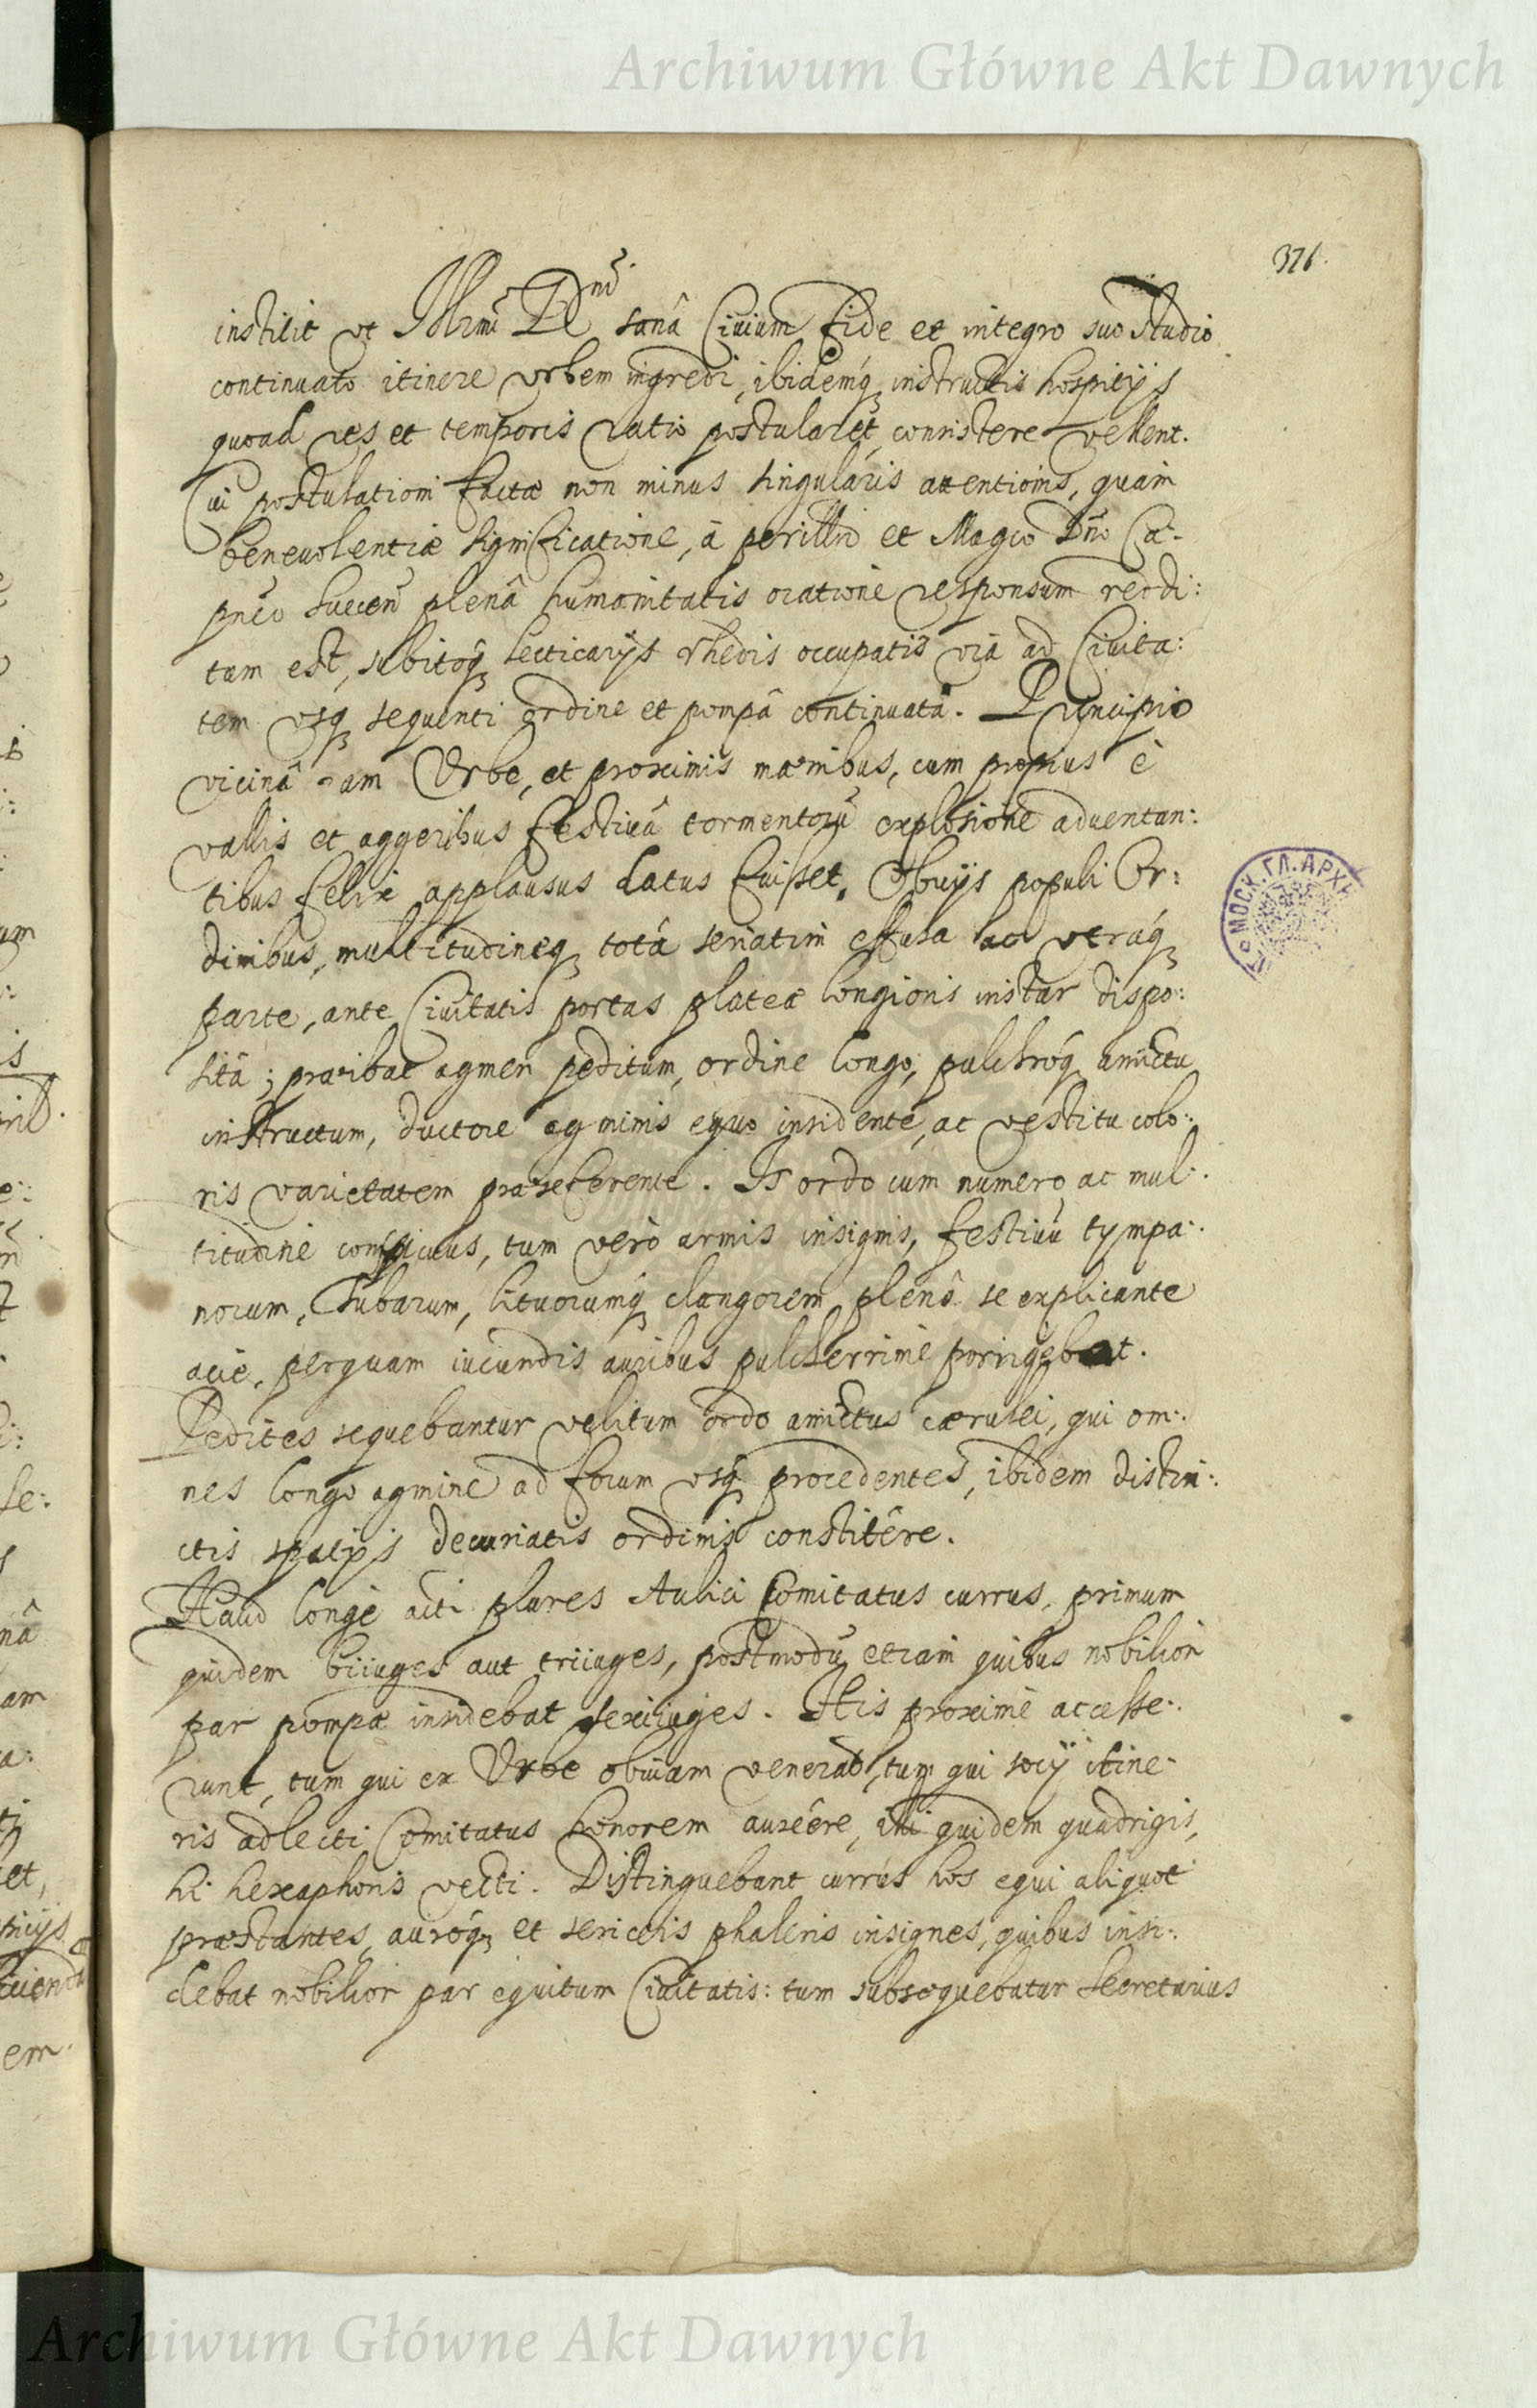 Archiwum Główne Akt Dawnych
376.
institit ut Illrmi Dni sanâ Civium fide et integro suo studio
continuato itinere urbem ingredi, ibidemq, instructis hospitijs
quoad res et temporis ratio postularet, consistere vellent.
Cui postulationi factæ non minus singularis attentionis, quàm
benevolentiæ significatione, à perillri et Magco Dño Ca-
pneo Suecen plenâ humanitatis oratione responsum reddi:
tum est, subitoq, lecticarijs rhedis occupatis via ad Civita:
tem usq, sequenti ordine et pompâ continuata. Principio
vicinâ iam Urbe, et proximis mænibus, cum propius è
vallis et aggeribus festivâ tormentorũ explosione adventan:
tibus felix applausus datus fuisset. Obvijs populi Or:
dinibus, multitudineq, totâ seriatim effusa ac utráq,
parte, ante Civitatis portas plateæ longioris instar dispo:
sitâ; præibat agmen peditum, ordine longo, pulchróq, amictu
instructum, ductore agminis equo insidente, ac vestitu colo:
ris varietatem præseferente. Is ordo cum numero ac mul:
titudine conspicuus, tum verò armis insignis, festivũ tympa:
norum, Tubarum, lituorumq, clangorem plenâ se explicante
acie, perquam iucundis auribus pulcherrimè porrigebat.
Pedites sequebantur velitum ordo amictus cærulei, qui om:
nes longo agmine ad forum usq, procedentes, ibidem distin:
ctis spatijs decuriatis ordinis constitêre.
Haud longè acti plures Aulici Comitatus currus, primum
quidem biiuges aut triiuges, postmodũ etiam quibus nobilior
par pompæ insidebat sexiiuges. His proximè accesse:
runt, tum qui ex Urbe obviam venerat, tum qui socij itine-
ris adlecti Comitatus honorem auxêre, illi quidem quadrigis,
hi hexaphoris vecti. Distinguebant currus hos equi aliquot
præstantes, auróq, et sericeis phaleris insignes, quibus insi:
debat nobilior par equitum Civitatis: tum subsequebatur Secretarius
МОСК. ГЛ. АРХИ
Archiwum Główne Akt Dawnych